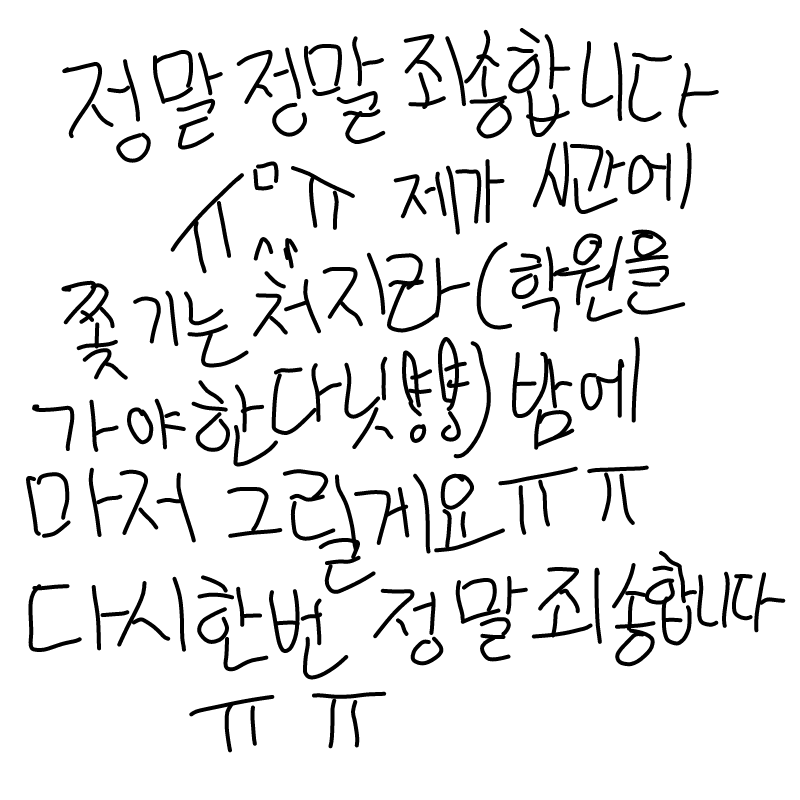 정말 정말 죄송합니다
ㅠㅁㅠ 제가 시간에
쫓기는 처지라 (학원을
가야한다닛) 밤에
마저 그릴게요ㅠㅠ
다시한번 정말죄송합니다
ㅠㅠ